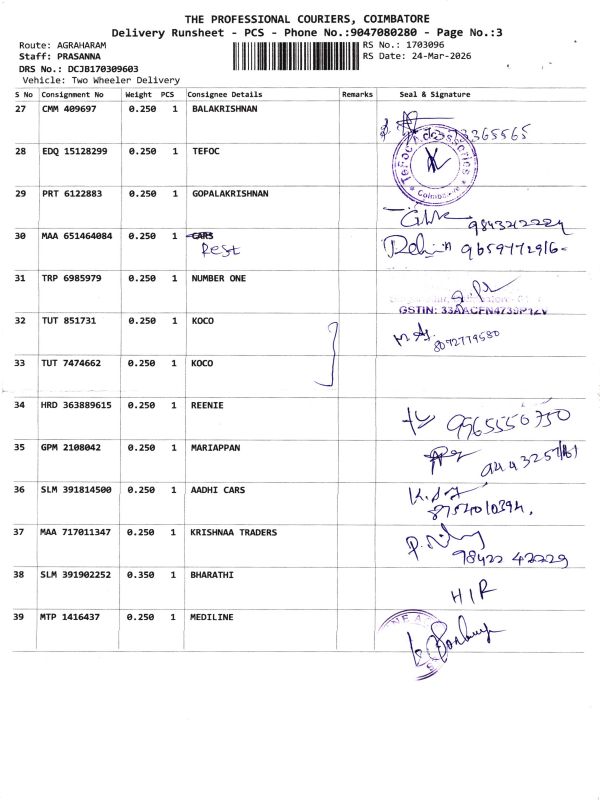 THE PROFESSIONAL COURIERS, COIMBATORE
Delivery Runsheet - PCS - Phone No.:9047080280 - Page No.:3
Route: AGRAHARAM
RS No.: 1703096
Staff: PRASANNA
RS Date: 24-Mar-2026
DRS No.: DCJB170309603
Vehicle: Two Wheeler Delivery
S No Consignment No Weight PCS Consignee Details Remarks Seal & Signature
27 CMM 409697 0.250 1 BALAKRISHNAN
28 EDQ 15128299 0.150 1 TEFOC
TeFoc Accessories * Coimbatore *
29 PRT 6122883 0.250 1 GOPALAKRISHNAN
9843212224
30 MAA 651464084 0.250 1 CARS
Rest
9659772916
31 TRP 6985979 0.250 1 NUMBER ONE
GSTIN:
32 TUT 851731 0.250 1 KOCO
8072779580
33 TUT 7474662 0.250 1 KOCO
34 HRD 363889615 0.250 1 REENIE
9965550750
35 GPM 2108042 0.250 1 MARIAPPAN
36 SLM 391814500 0.250 1 AADHI CARS
37 MAA 717011347 0.250 1 KRISHNAA TRADERS
98422 42229
38 SLM 391902252 0.350 1 BHARATHI
H/R
39 MTP 1416437 0.250 1 MEDILINE